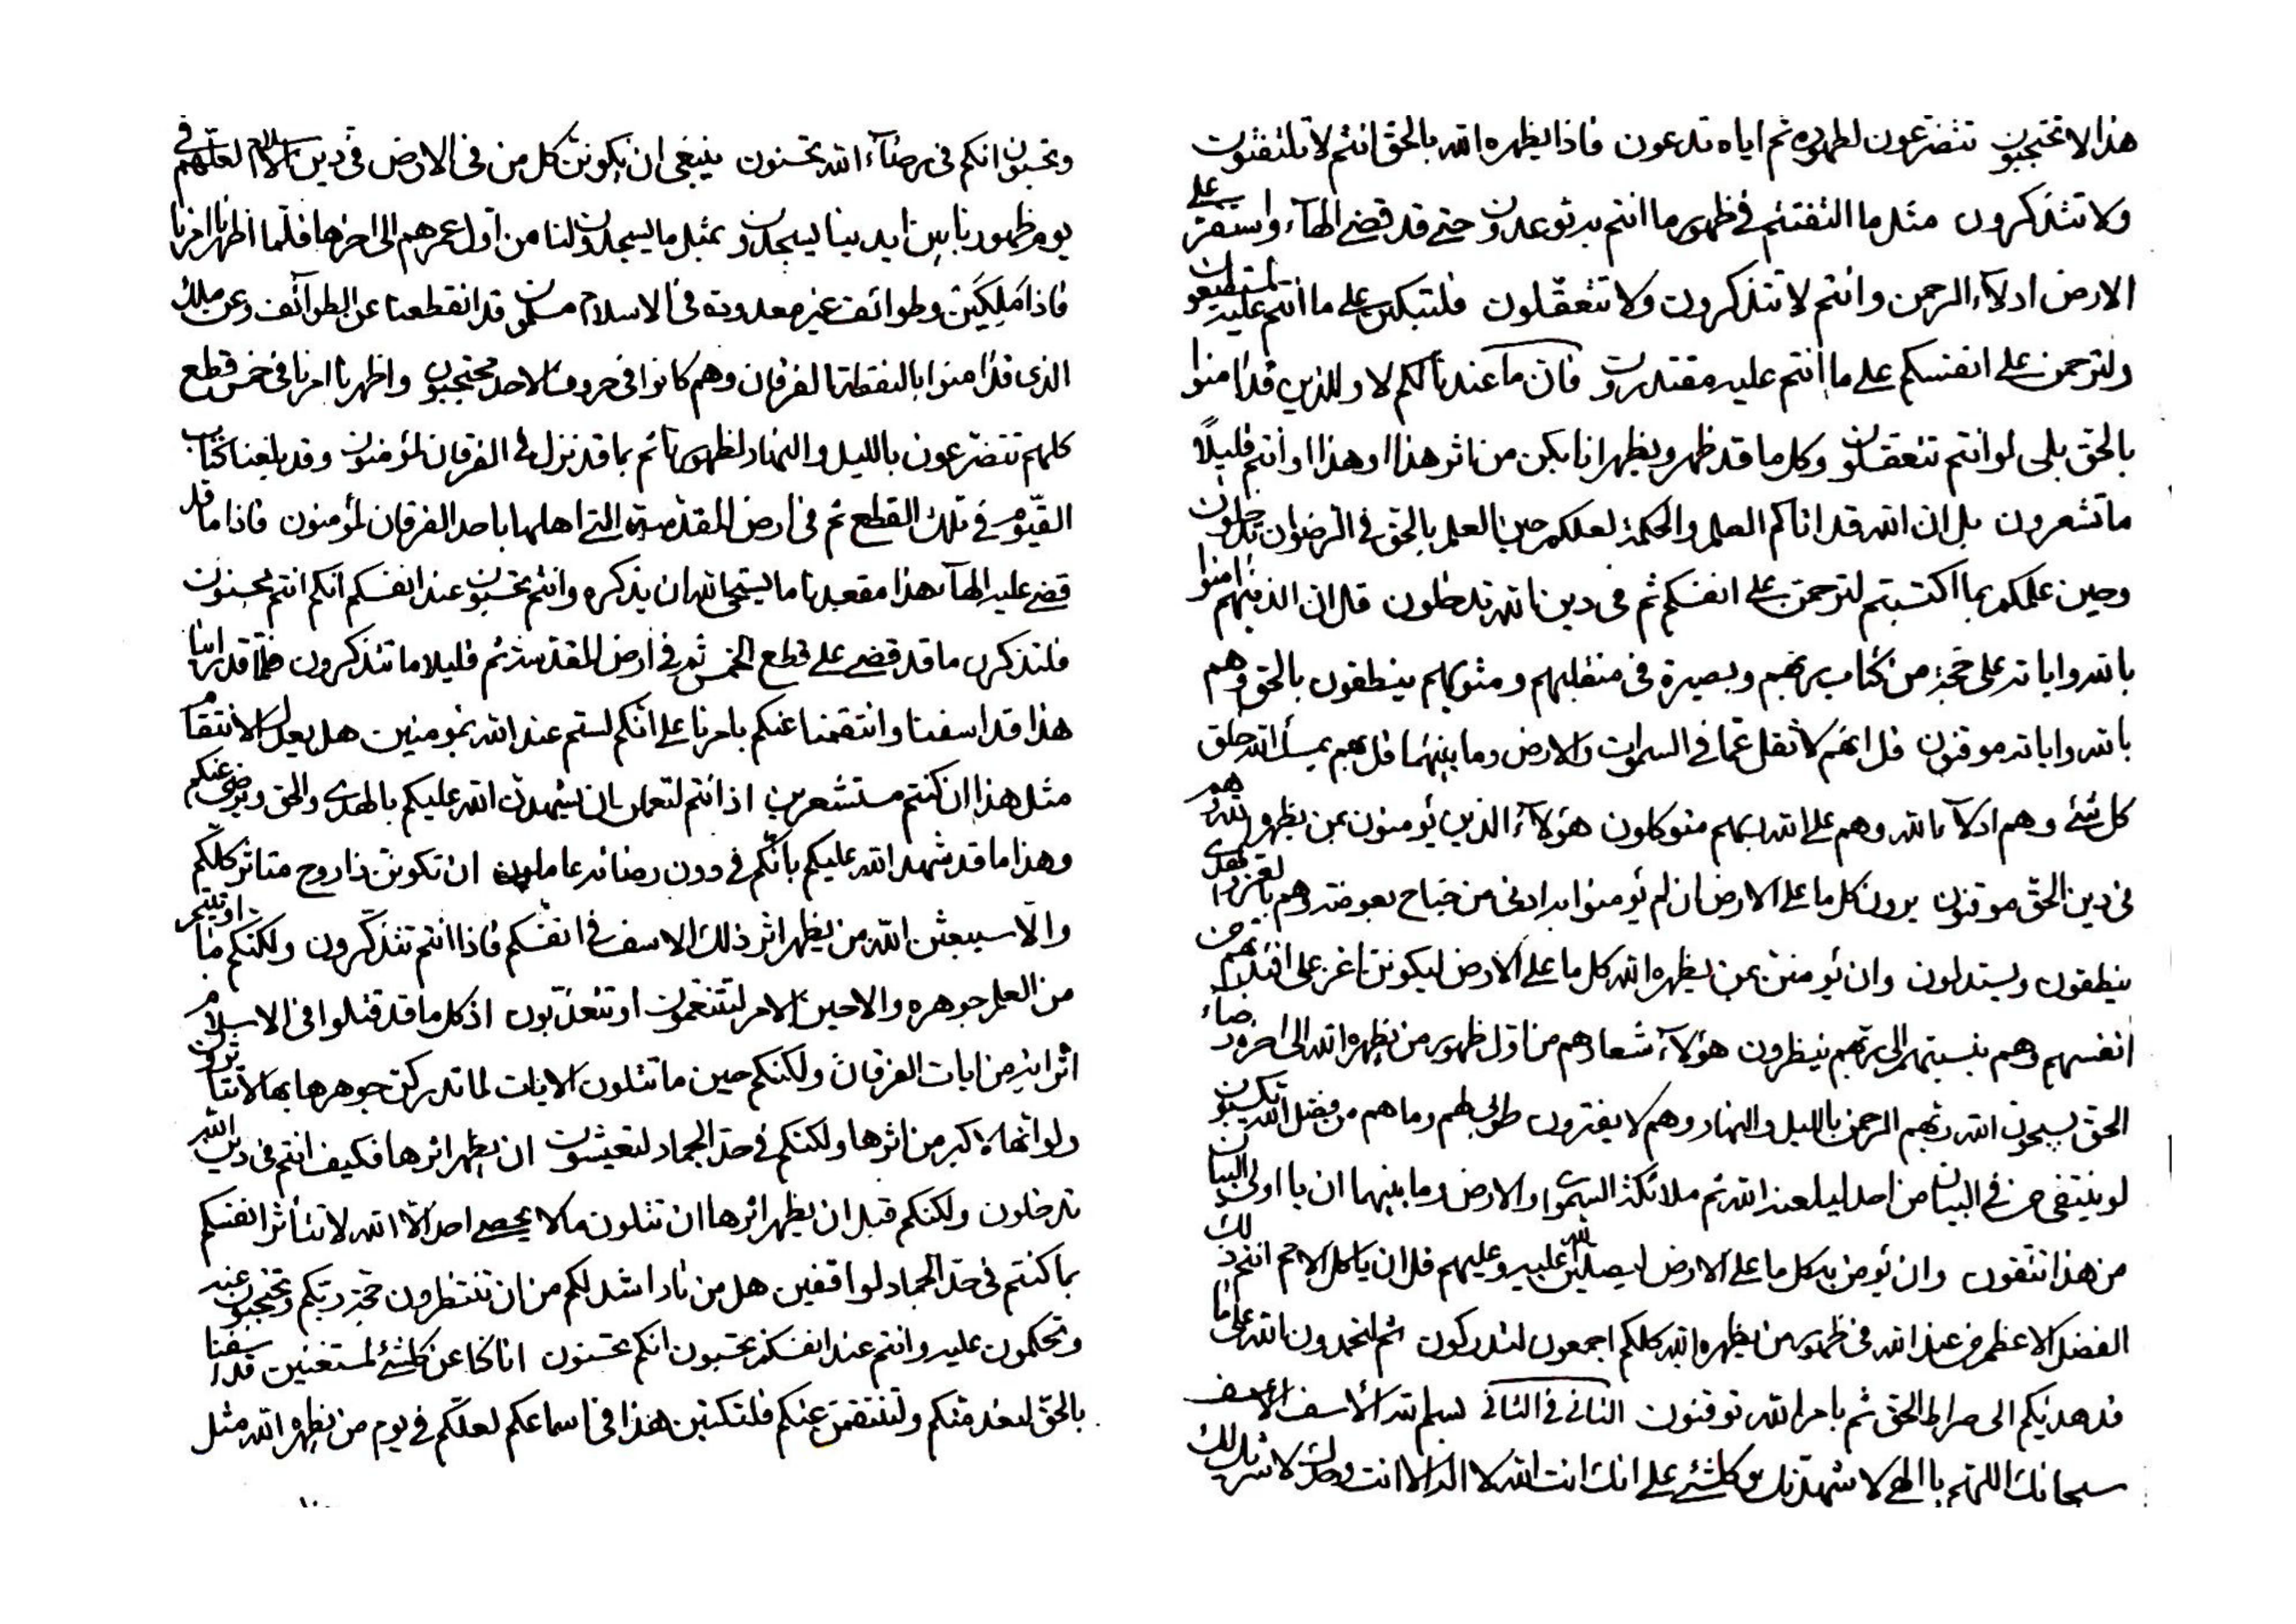 وتحسبون انكم فى رضآء الله تحسنون ينبغى ان يكونن كل من فى الارض فى دين الاسلام لعلهم فى
يوم ظهور ربنا بين ايدينا ليسجدون بمثل ما ليسجدون لنا من اول عمرهم الى اخرها فلما اظهرنا امرنا
فاذا ملكين وطوائف غير معدودة فى الاسلام مسلمون قد انقطعنا عن الطوآئف وعن ملك
الذى قد امنوا بالنقطة الفرقان وهم كانوا فى حروف الاحد محتجبون واظهرنا امرنا فى خمس قطع
كلهم تتضرعون بالليل والنهار لظهورنا ثم بما قد نزل فى الفرقان لمؤمنون وقد بلغنا كتاب
القيوم فى تلك القطع ثم فى ارض المقدسة التى اهلها باحد الفرقان لمؤمنون فاذا ما قد
قضى عليه الهآء هذا مقعدنا ما يستحى الله ان يذكره وانتم تحسبون عند انفسكم انكم انتم محسنون
فلتذكرن ما قد قضى على قطع الخمس ثم فى ارض المقدسة ثم قليلا ما تتذكرون فلما قد راينا
هذا قد اسفنا وانتقمنا عنكم بامرنا على انكم لستم عند الله بمؤمنين هل يعدل الانتقام
مثل هذا ان كنتم مستشعرين اذ انتم لتعملن بان يشهدن الله عليكم بالهدى والحق ويرضى عنكم
وهذا ما قد شهد الله عليكم بانكم فى دون رضائه عاملون ان تكونن ذا روح متاثر كلكم
والا سيبعثن الله من يظهر اثر ذلك الاسف فى انفسكم فاذا انتم تتذكرون ولكنكم ما اوتيتم
من العلم جوهره والا حين الامر لتتنعمون او تتعذبون اذ كل ما قد قتلوا فى الاسلام
اثر اية من ايات الفرقان ولكنكم حين ما تتلون الايات لما تدركن جوهرها بها لا تتاثرون
ولو انها لاكبر من اثرها ولكنكم فى حد الجماد لتعيشون ان يظهر اثرها فكيف انتم فى دين الله
تدخلون ولكنكم قبل ان يظهر اثرها ان تتلون ما لا يحصى احد الا الله لا تتاثر انفسكم
بما كنتم فى حد الجماد لواقفين هل من نار اشد لكم من ان تنتظرون حجة ربكم وتحتجبون عنه
وتحكمون عليه وانتم عند انفسكم تحسبون انكم تحسنون انا كنا عن كلشئ لمستغنين قد اسفنا
بالحق لبعد منكم ولننتقمن عنكم فلتكتبن هذا فى اسماعكم لعلكم فى يوم من يظهره الله مثل
هذا لا تحتجبون تتضرعون لظهوره ثم اياه تدعون فاذا يظهره الله بالحق انتم لا تلتفتون
ولا تتذكرون مثل ما التفتتم فى ظهور ما انتم به توعدون حتى قد قضى الهآء واستقر على
الارض ادلآء الرحمن وانتم لا تتذكرون ولا تتعقلون فلتبكين على ما انتم عليه لمستطيعون
ولترحمن على انفسكم على ما انتم عليه مقتدرون فان ما عندنا لكم لا وللذين قد امنوا
بالحق بلى لو انتم تتعقلون وكل ما قد ظهر ويظهر انا يكن من اثر هذا او هذا او انتم قليلا
ما تشعرون بل ان الله قد اتاكم العلم والحكمة لعلكم حين العلم بالحق فى الرضوان تدخلون
وحين علمكم بما اكتسبتم لترحمن على انفسكم ثم فى دين الله تدخلون قل ان الذينهم امنوا
بالله واياته على حجة من كتاب ربهم وبصيرة فى منقلبهم ومثويهم ينطقون بالحق وهم
بالله واياته موقنون قل انهم لا ثقل عما فى السموات والارض وما بينهما قل بهم يمسك الله خلق
كل شئ وهم ادلآء بالله وهم على الله ربهم متوكلون هؤلآء الذين يؤمنون بمن يظهره الله هم
فى دين الحق موقنون يرون كل ما على الارض ان لم يؤمنوا به ادنى من جناح بعوضة وهم بالعز والهدى
ينطقون ويستدلون وان يؤمنن بمن يظهره الله كل ما على الارض ليكونن اعز على افئدتهم من
انفسهم وهم بنسبتهم الى ربهم ينظرون هؤلآء شعارهم من اول ظهور من يظهره الله الى اخره رضاء
الحق يسبحون الله ربهم الرحمن بالليل والنهار وهم لا يفترون طوبى لهم وما هم من فضل الله يكسبون
لو ينتفى من فى البيان من احد ليلعنه الله ثم ملائكة السموات والارض وما بينهما ان يا اولى البيان
من هذا تتقون وان يؤمن به كل ما على الارض ليصلين الله عليه وعليهم قل ان يا كل الامم انتم ذلك
الفضل الاعظم من عند الله فى ظهور من يظهره الله كلكم اجمعون لتدركون ثم لتحمدون الله على ما
قد هديكم الى صراط الحق ثم بامر الله توقنون الثانى فى الثانى بسم الله الاسف الاسف
سبحانك اللهم يا الهى لاشهدنك وكلشئ على انك انت الله لا اله الا انت وحدك لا شريك لك